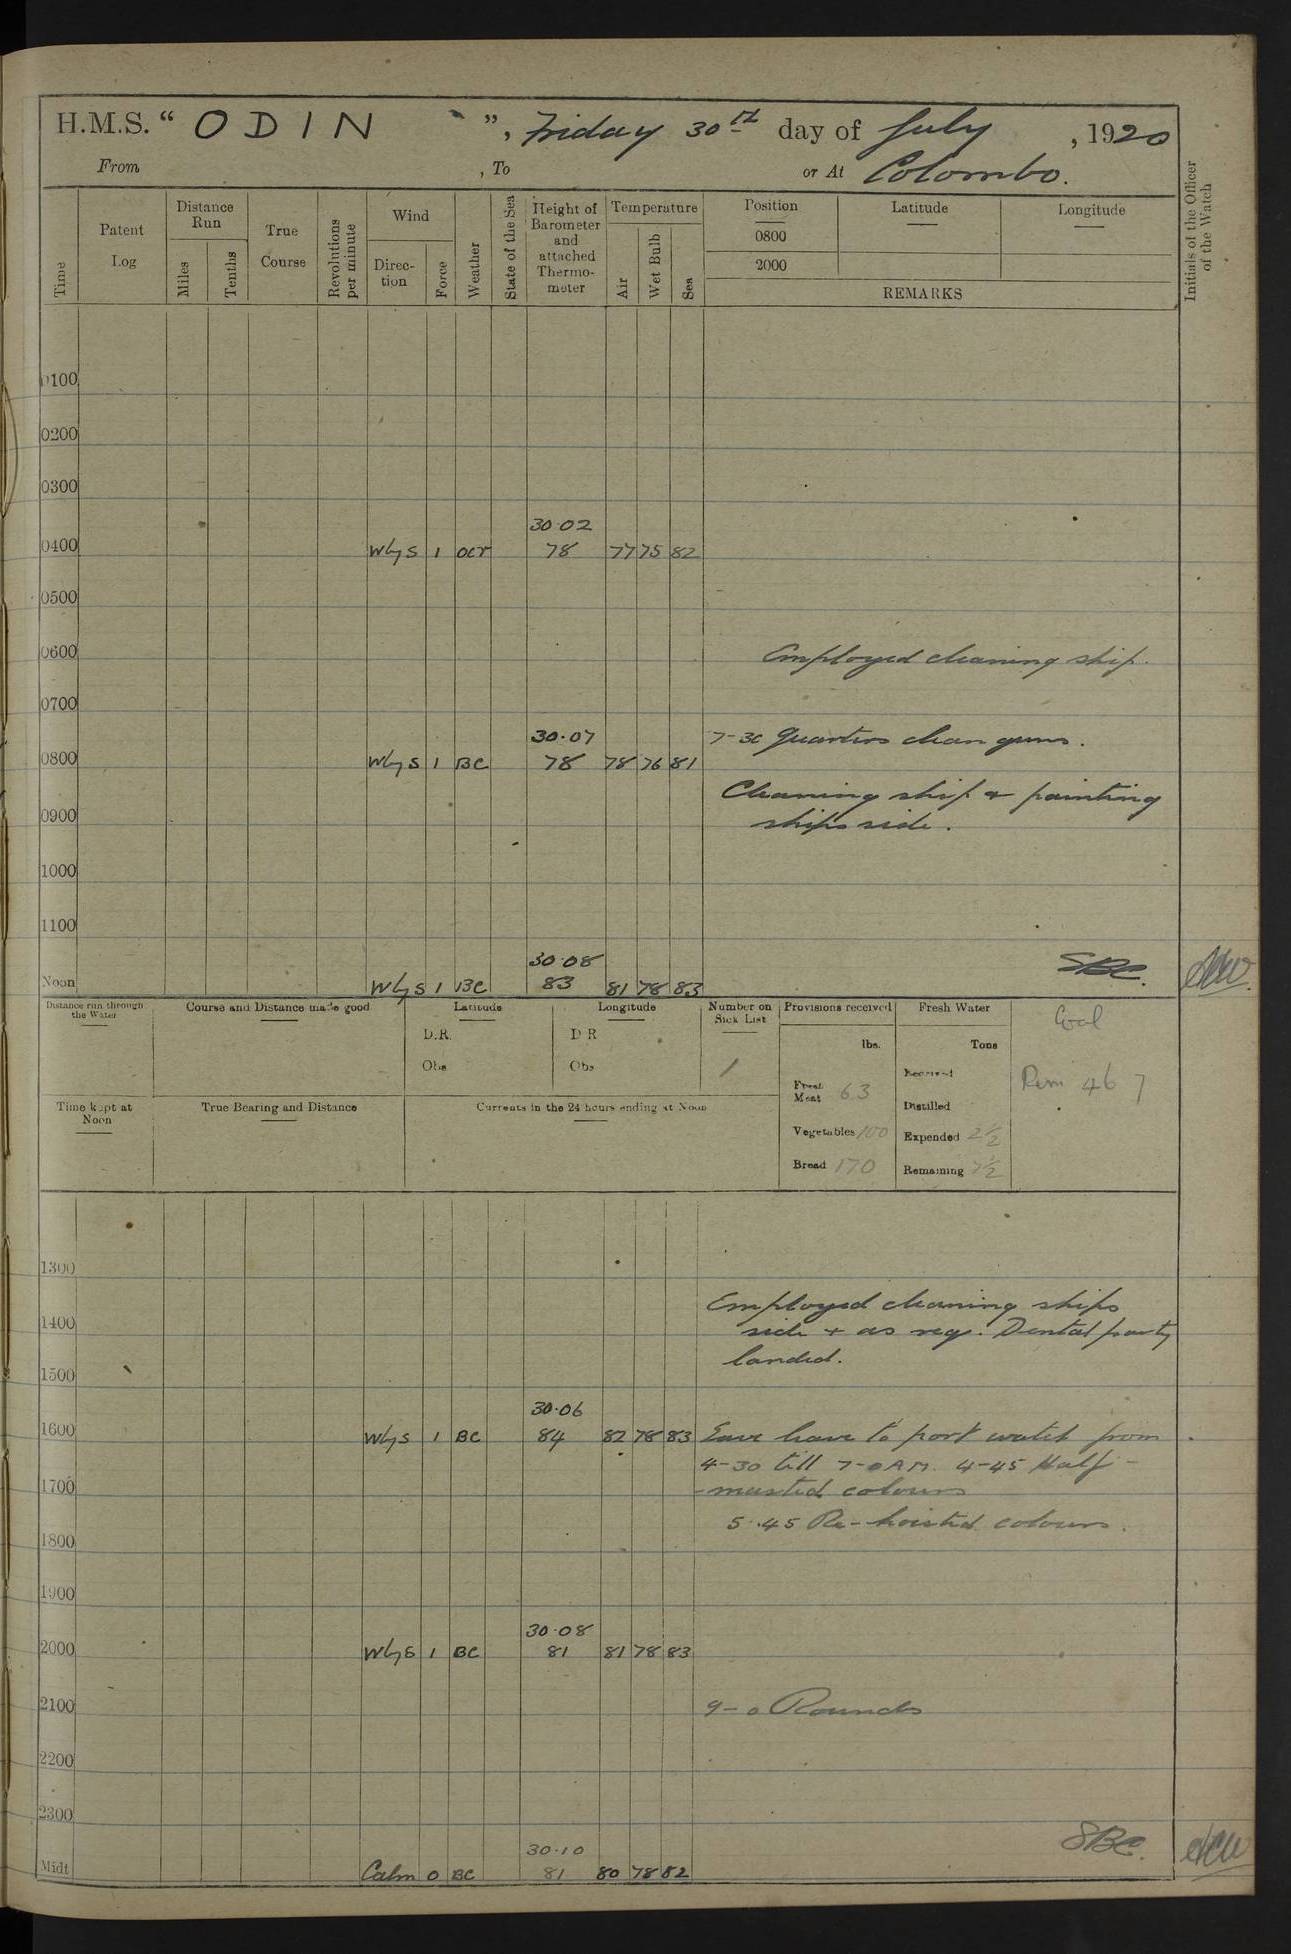 H.M.S. “ ODIN ”, Friday 30th day of July , 1920
From , To or At Colombo.
Time
Patent Log
Distance Run
Miles
Tenths
True Course
Revolutions per minute
Wind
Direction
Force
Weather
State of the Sea
Height of Barometer and attached Thermometer
Temperature
Air
Wet Bulb
Sea
Position Latitude Longitude
0800
2000
REMARKS
Initials of the Officer of the Watch
0100
0200
0300
30.02
0400 WbyS 1 ocr 78 77 75 82
0500
0600 Employed cleaning ship.
0700
30.07 7-30 Quarters clean guns.
0800 WbyS 1 BC 78 78 76 81
Cleaning ship & painting
0900 ships side.
1000
1100
30.08 SBC
Noon WbyS 1 BC 83 81 78 83
Distance run through the Water
Course and Distance made good
Latitude
D.R.
Obs
Longitude
D R
Obs
Number on Sick List
1
Provisions received
lbs.
Fresh Meat 63
Vegetables 100
Bread 170
Fresh Water
Tons
Received
Distilled
Expended 2½
Remaining 7½
Coal
Rem 467
Time kept at Noon
True Bearing and Distance
Currents in the 24 hours ending at Noon
1300
Employed cleaning ships
1400 side & as req. Dental party
landed.
1500
30.06
1600 WbyS 1 BC 84 82 78 83 Gave leave to port watch from
4-30 till 7-0 AM. 4-45 Half-
1700 -masted colours
5.45 Re-hoisted colours.
1800
1900
30.08
2000 WbyS 1 BC 81 81 78 83
2100 9-0 Rounds
2200
2300
30.10 SBC.
Midt Calm 0 BC 81 80 78 82